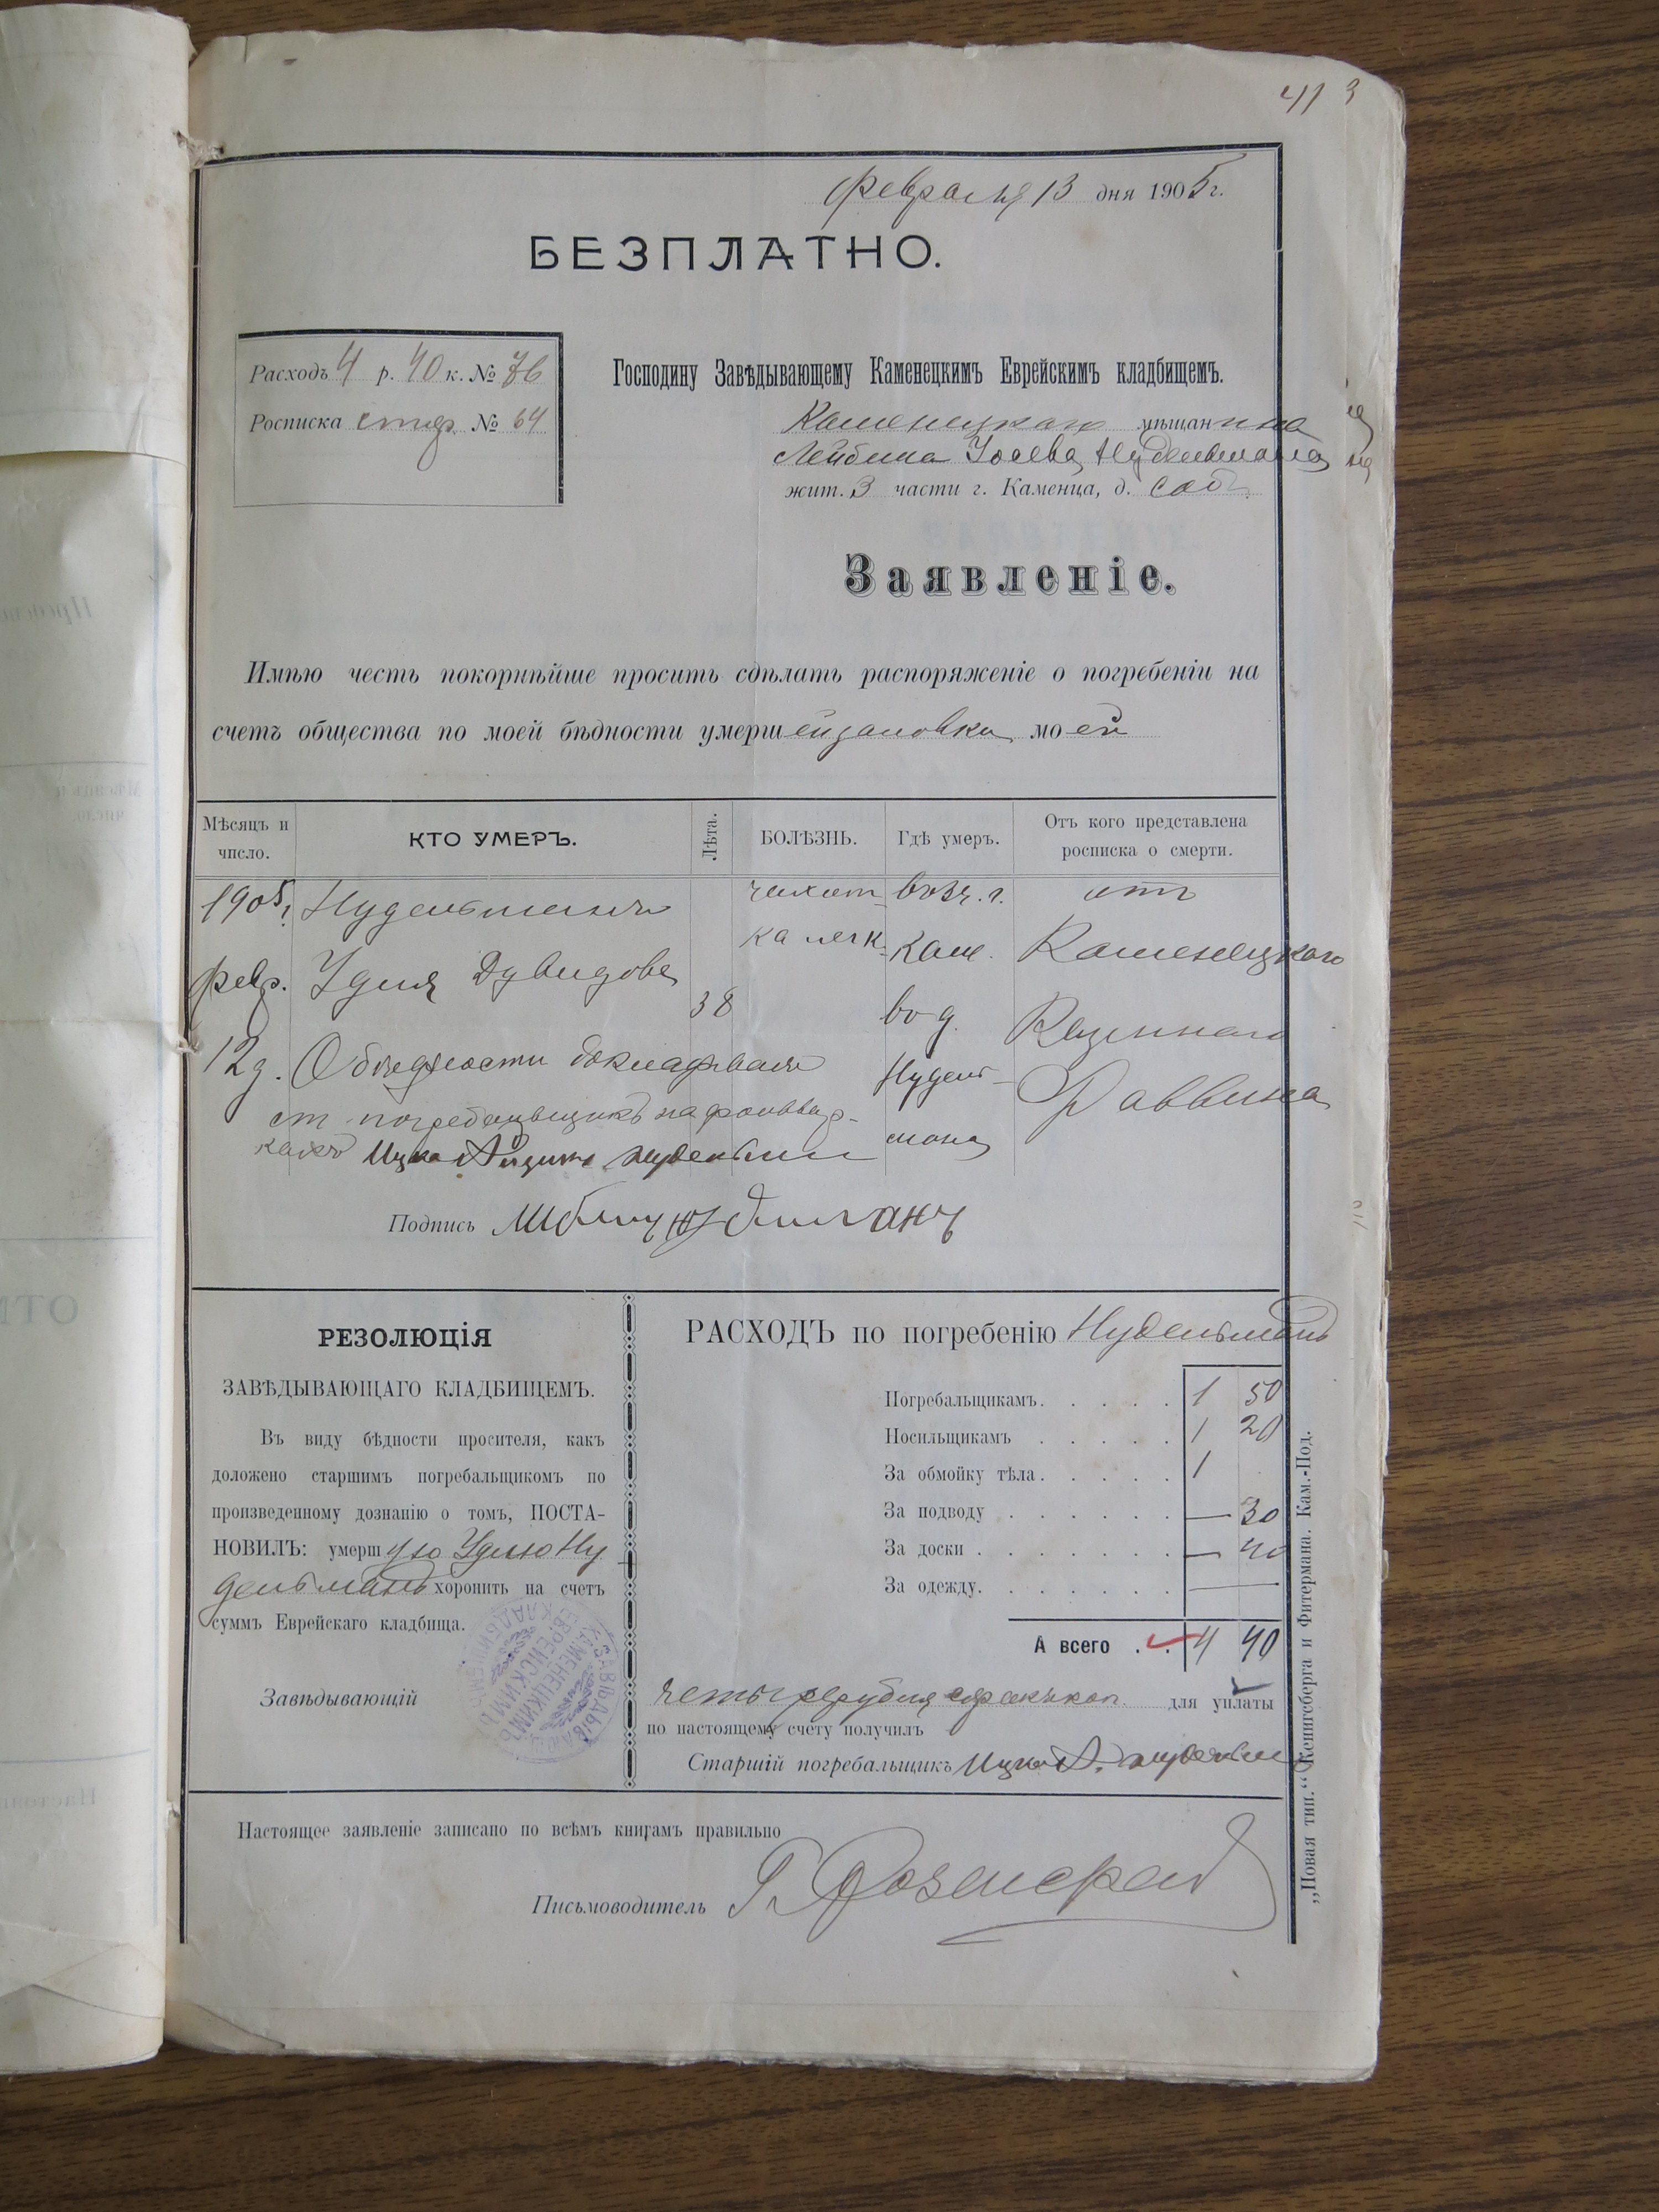 413
февраля 13 дня 1905 г.
БЕЗПЛАТНО.
Расходъ 4 р. 40 к. № 76
Росписка № 64
Господину Завѣдывающему Каменецкимъ Еврейскимъ кладбищемъ.
Каменецкаго мѣщанина
Лейбиша Іосева Нудельмана
жит. 3 части г. Каменца, д. соб.
Заявленіе.
Имѣю честь покорнѣйше просить сдѣлать распоряженіе о погребеніи на
счетъ общества по моей бѣдности умершей моей
Мѣсяцъ и число.
КТО УМЕРЪ.
Лѣта.
БОЛѢЗНЬ.
Гдѣ умеръ.
Отъ кого представлена росписка о смерти.
1905 г. Нудельманъ чахот- въ г. отъ
ка легк. Кам. Каменецкаго
февр. Удля Дувидова 38 въ д. Казеннаго
12 д. О бѣдности докладывалъ Нудель- Раввина
ст. погребальщикъ на фольвар- мана
кахъ Ицко Нудельман
Подпись
РЕЗОЛЮЦІЯ
ЗАВѢДЫВАЮЩАГО КЛАДБИЩЕМЪ.
Въ виду бѣдности просителя, какъ
доложено старшимъ погребальщикомъ по
произведенному дознанію о томъ, ПОСТА-
НОВИЛЪ: умершую Удлю Ну-
дельманъ хоронить на счетъ
суммъ Еврейскаго кладбища.
Завѣдывающій
ЗАВѢДЫВАЮЩ КАМЕНЕЦКИМЪ ЕВРЕЙСКИМЪ КЛАДБИЩЕМЪ
РАСХОДЪ по погребенію Нудельманъ
Погребальщикамъ. 1 50
Носильщикамъ 1 20
За обмойку тѣла. 1
За подводу — 30
За доски — 40
За одежду. —
А всего 4 40
четыре рубля сорокъ коп. для уплаты
по настоящему счету получилъ
Старшій погребальщикъ Ицко А. Нудельман
Настоящее заявленіе записано по всѣмъ книгамъ правильно
Письмоводитель
„Новая тип.“ Кенигсберга и Фитермана. Кам.-Под.